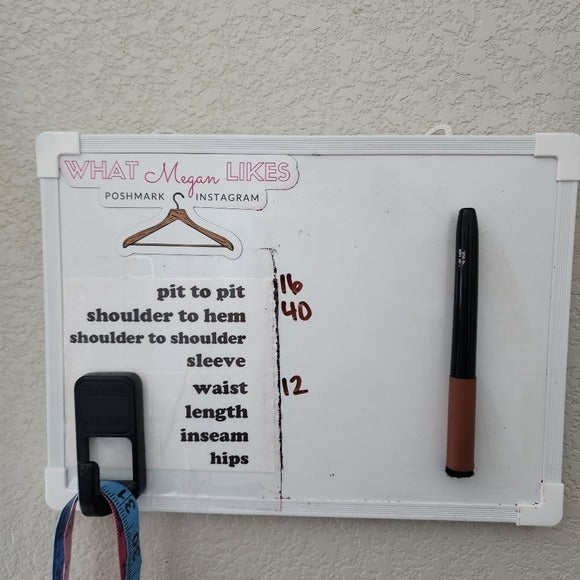 WHAT Megan LIKES
POSHMARK INSTAGRAM
pit to pit 16
shoulder to hem 40
shoulder to shoulder
sleeve
waist 12
length
inseam
hips
31